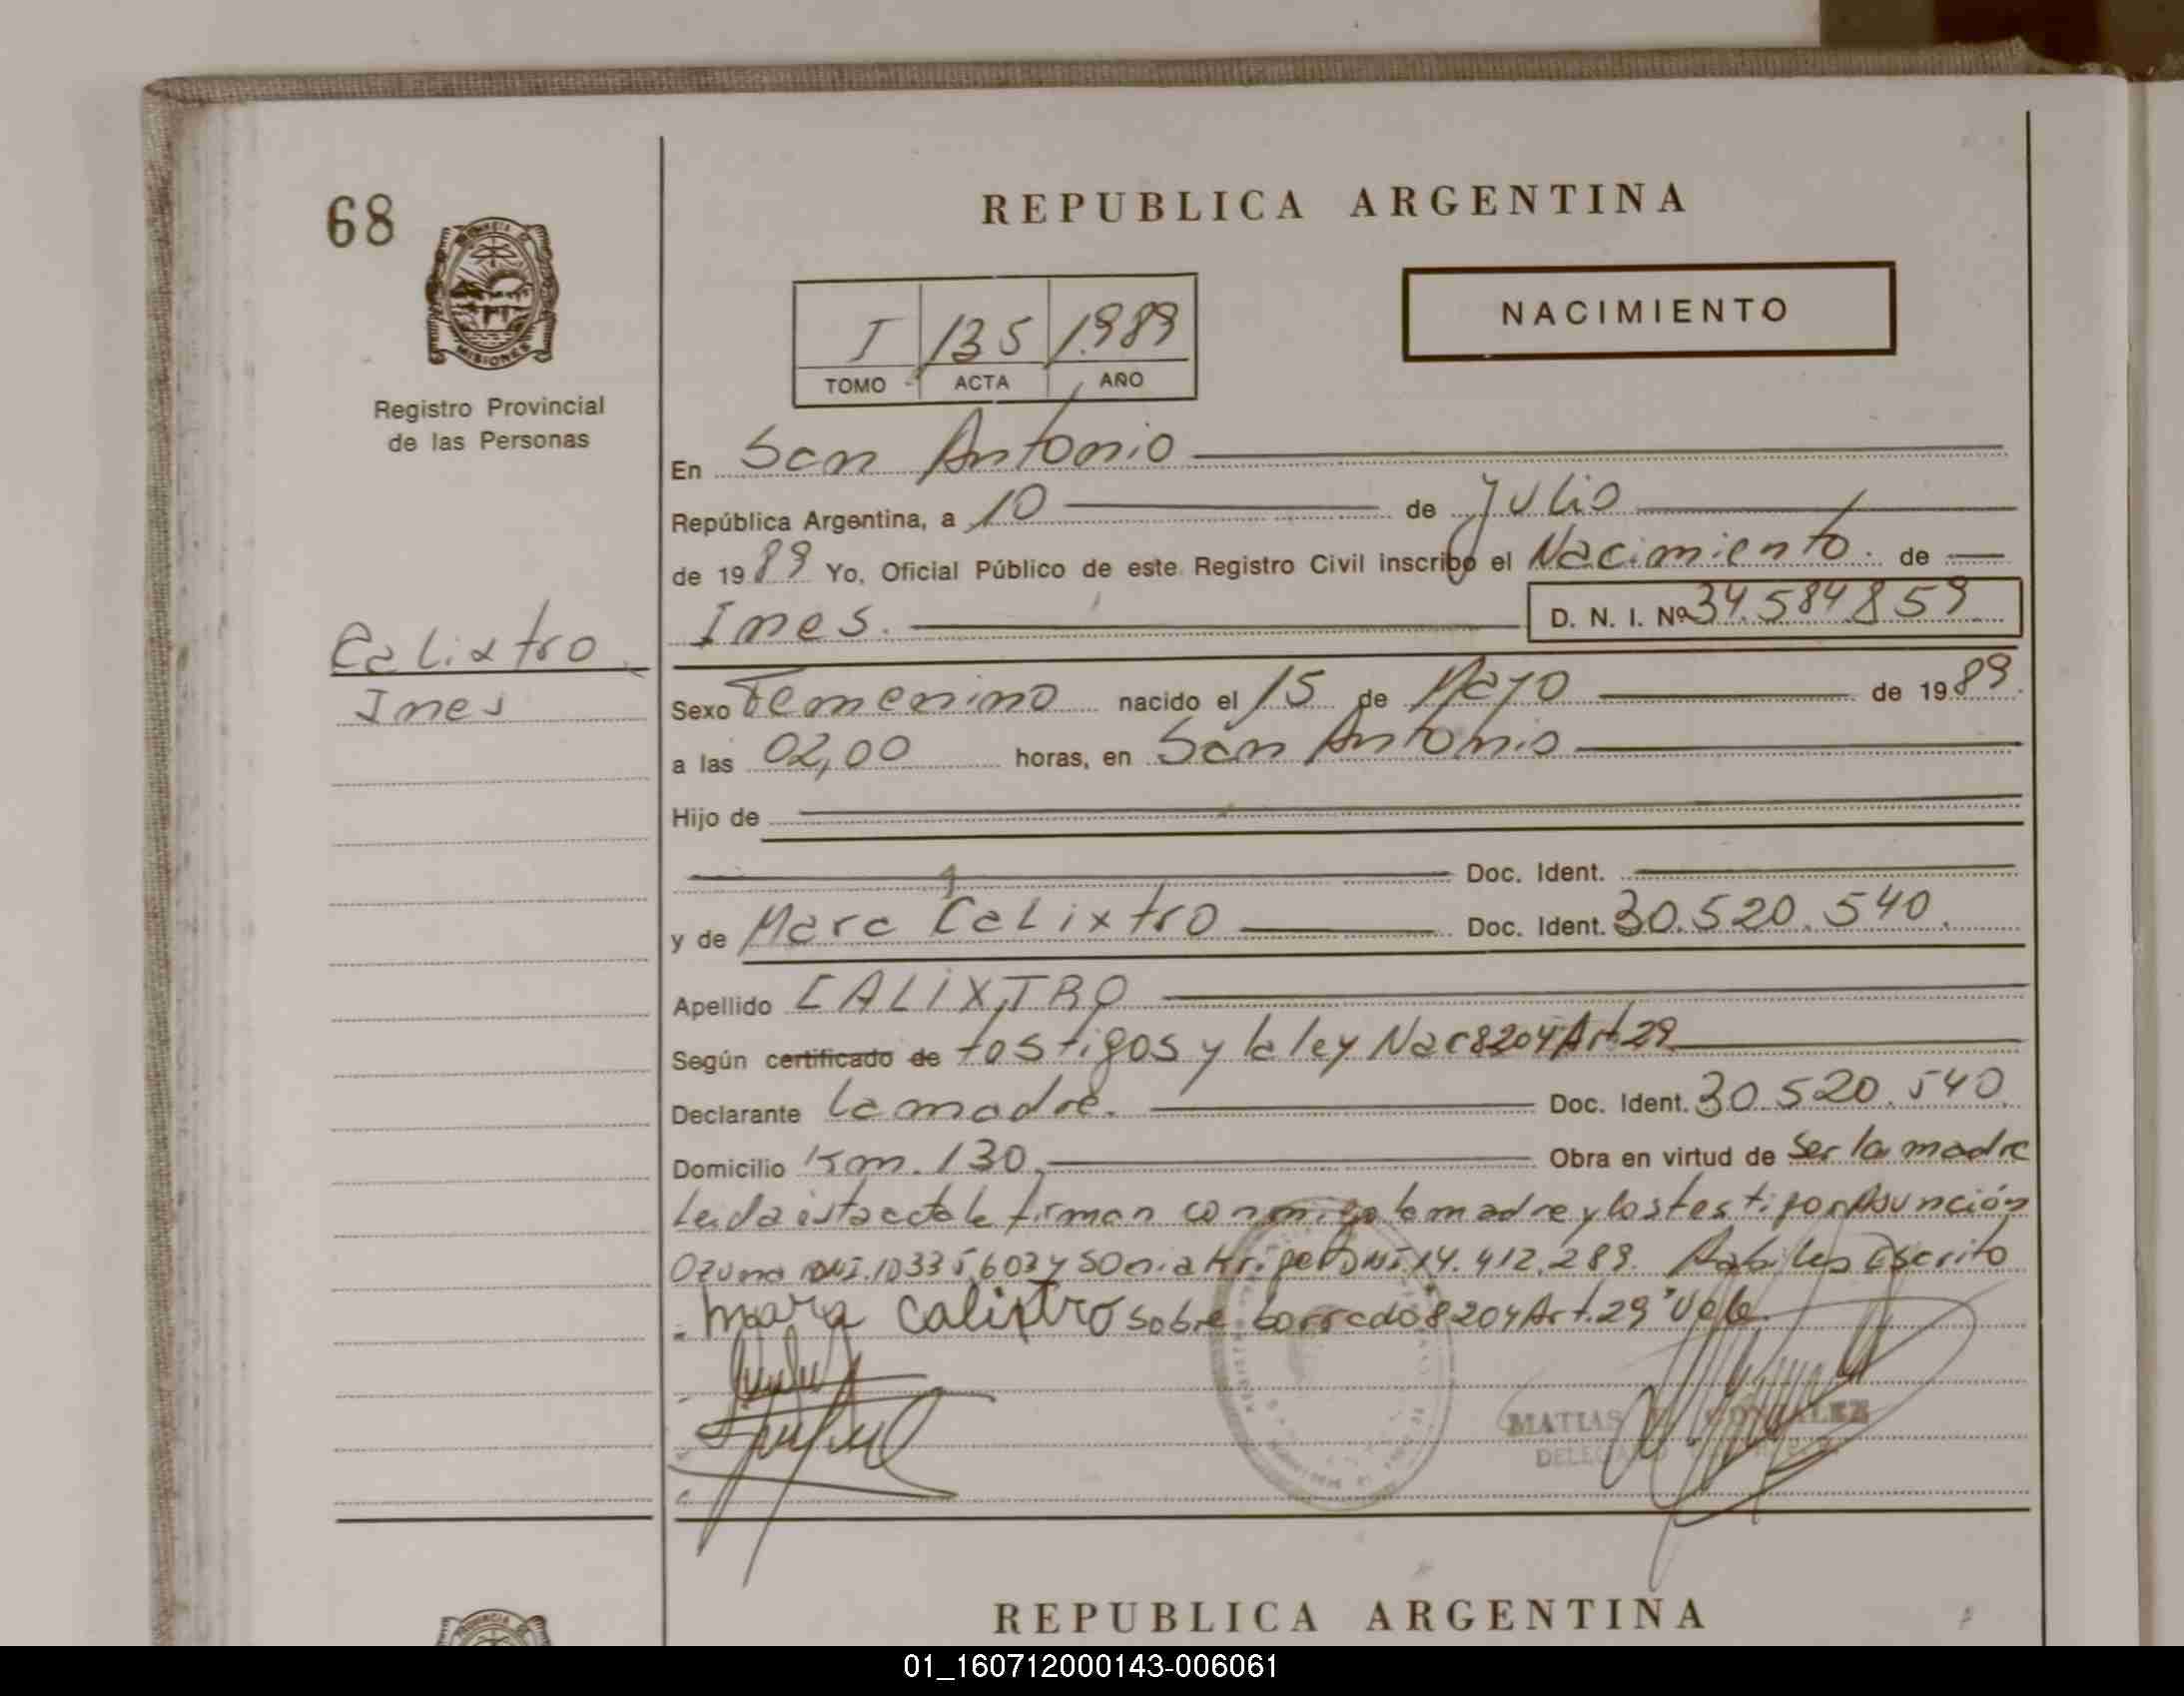 68
REPUBLICA ARGENTINA
MISIONES
Registro Provincial
de las Personas
NACIMIENTO
I 135 1989
TOMO ACTA AÑO
En San Antonio
República Argentina, a 10 de Julio
de 1989 Yo, Oficial Público de este Registro Civil inscribo el Nacimiento. de
Ines. D. N. I. Nº 34.584.859
Calixtro
Ines
Sexo Femenino nacido el 15 de Mayo de 1989
a las 02,00 horas, en San Antonio
Hijo de
Doc. Ident.
y de Mara Calixtro Doc. Ident. 30.520.540.
Apellido CALIXTRO
Según certificado de testigos y la ley Nac 8204 Art. 29
Declarante la madre. Doc. Ident. 30.520.540
Domicilio Km. 130. Obra en virtud de Ser la madre
Leida esta acta la firman conmigo la madre y los testigos Asunción
Ozuna DNI. 10335603 y Sonia DNI 14.412.289. Escrito
mara calixtro sobre borrado 8204 Art. 29 "Vale.
MATIAS GONZALEZ
REPUBLICA ARGENTINA
01_160712000143-006061